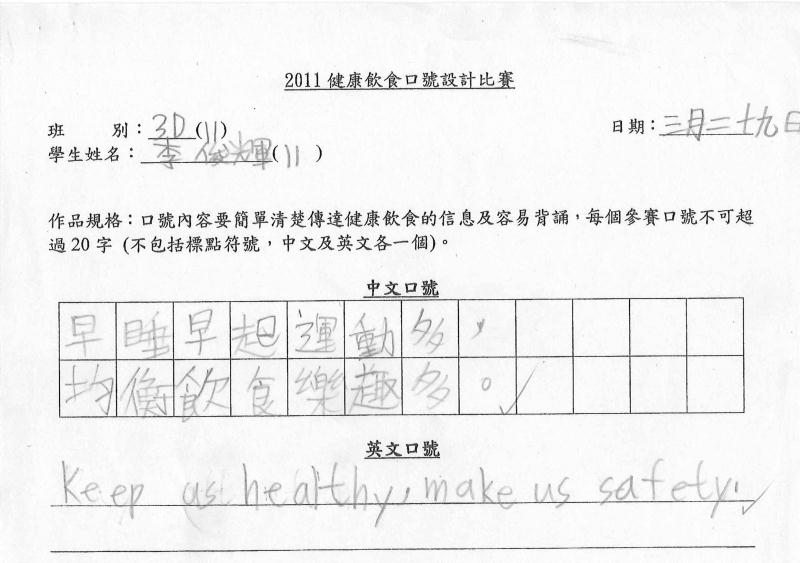 2011 健康飲食口號設計比賽
班 別：3D(11) 日期：三月二十九日
學生姓名：李俊輝(11)
作品規格：口號內容要簡單清楚傳達健康飲食的信息及容易背誦，每個參賽口號不可超
過 20 字 (不包括標點符號，中文及英文各一個)。
中文口號
早睡早起運動多，
均衡飲食樂趣多。
英文口號
Keep us healthy, make us safety.